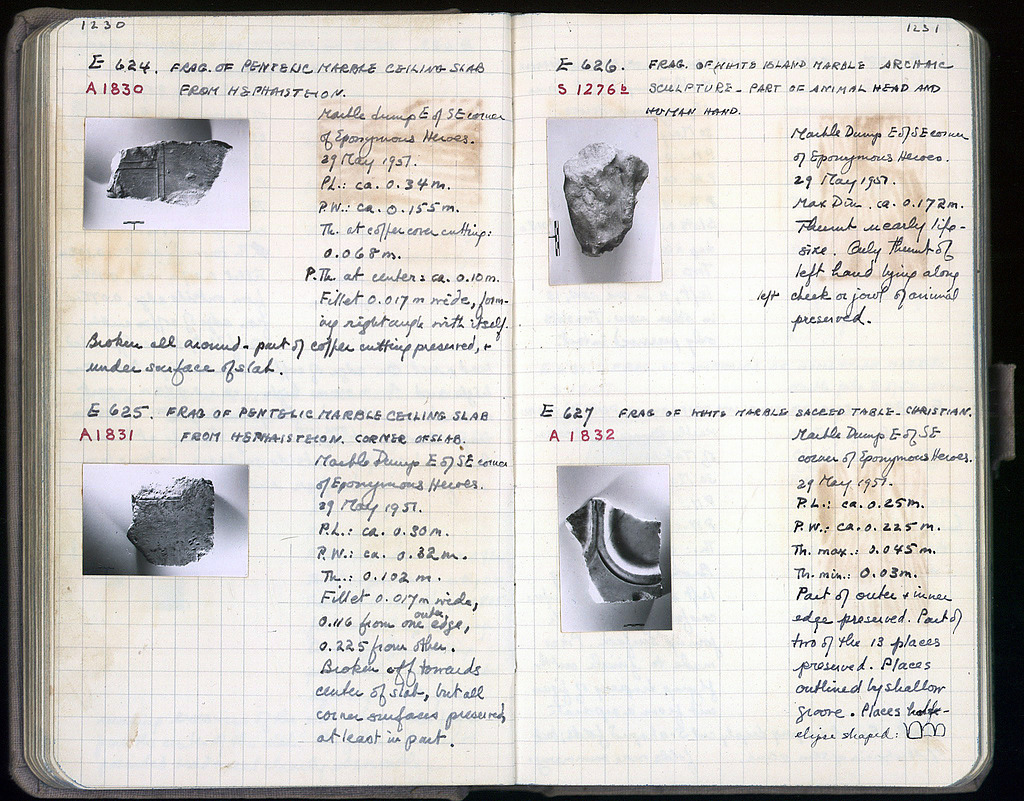 1230
E 624. FRAG. OF PENTELIC MARBLE CEILING SLAB
A 1830 FROM HEPHAISTEION.
Marble dump E of SE corner
of Eponymous Heroes.
29 May 1951.
P.L.: ca. 0.34 m.
P.W.: ca. 0.155 m.
Th. at coffer cover cutting:
0.068 m.
P.Th. at center: ca. 0.10 m.
Fillet 0.017 m wide, form-
ing right angle with itself.
Broken all around - part of coffer cutting preserved, +
under surface of slab.
E 625. FRAG OF PENTELIC MARBLE CEILING SLAB
A 1831 FROM HEPHAISTEION. CORNER OF SLAB.
Marble Dump E of SE corner
of Eponymous Heroes.
29 May 1951.
P.L.: ca. 0.30 m.
P.W.: ca. 0.32 m.
Th.: 0.102 m.
Fillet 0.017 m wide,
0.116 from one outer edge,
0.225 from other.
Broken off towards
center of slab, but all
corner surfaces preserved
at least in part.
1231
E 626. FRAG. OF WHITE ISLAND MARBLE ARCHAIC
S 1276 b SCULPTURE - PART OF ANIMAL HEAD AND
HUMAN HAND.
Marble Dump E of SE corner
of Eponymous Heroes.
29 May 1951.
Max Dim. ca. 0.172 m.
Thumb nearly life-
size. Only thumb of
left hand lying along
left cheek or jowl of animal
preserved.
E 627 FRAG OF WHITE MARBLE SACRED TABLE - CHRISTIAN.
A 1832
Marble Dump E of SE
corner of Eponymous Heroes.
29 May 1951.
P.L.: ca. 0.25 m.
P.W.: ca. 0.225 m.
Th. max.: 0.045 m.
Th. min.: 0.03 m.
Part of outer + inner
edge preserved. Part of
two of the 13 places
preserved. Places
outlined by shallow
groove. Places half-
elipse shaped: